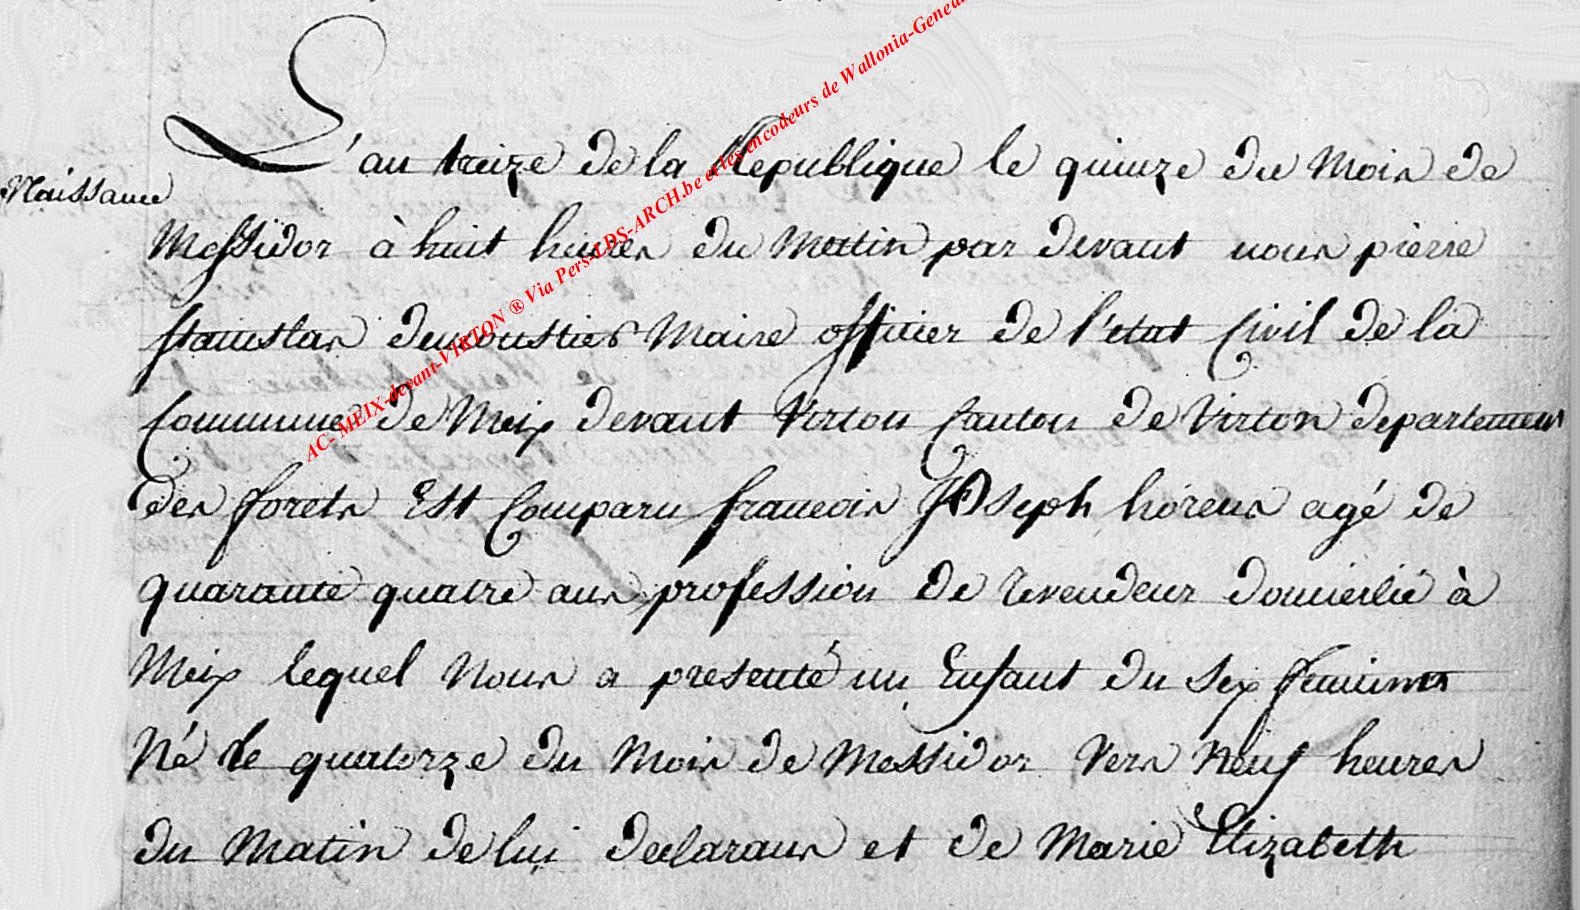 L'an treize de la Republique le quinze du Mois de
Naissance
Messidor à huit heures du Matin par devant nous pierre
stanislas Maire officier de l'état Civil de la
Commune de Meix devant Virton Canton de Virton departement
des forets Est Comparu francois Joseph agé de
quarante quatre ans profession de revendeur domicilié à
Meix lequel Nous a presenté un Enfant du sex feminin
Né le quatorze du Mois de Messidor vers Neuf heures
du Matin de lui declarans et de Marie Elizabeth
AC- MEIX-devant-VIRTON ® Via Pers-LDS-ARCH.be et les encodeurs de Wallonia-Geneal